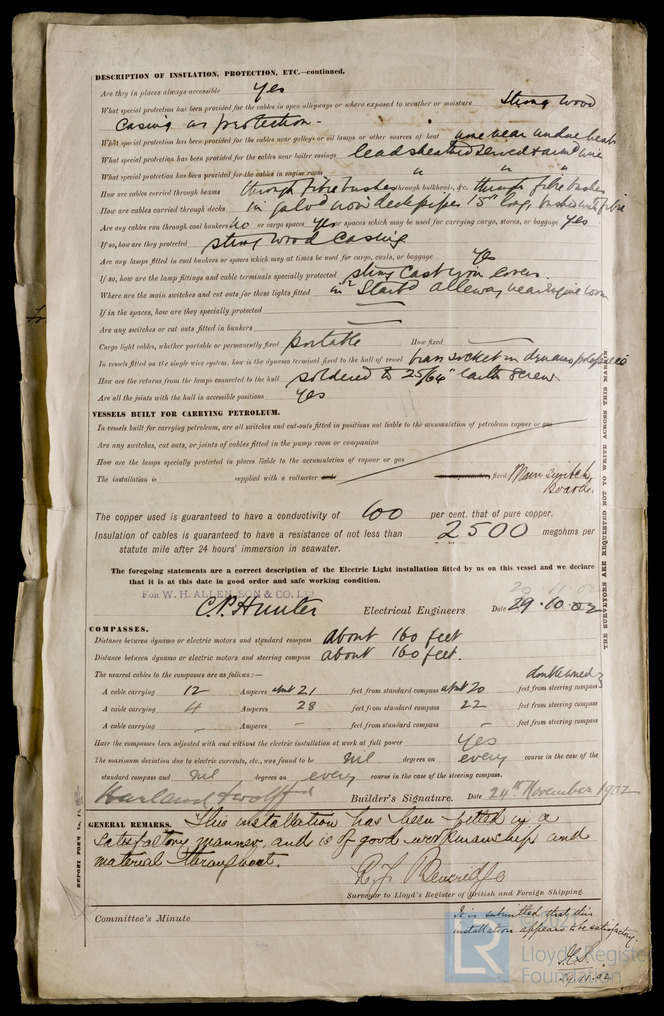 DESCRIPTION OF INSULATION, PROTECTION, ETC.—continued.
Are they in places always accessible Yes
What special protection has been provided for the cables in open alleyways or where exposed to weather or moisture Strong wood
Casing as protection.
What special protection has been provided for the cables near galleys or oil lamps or other sources of heat none near undue heat
What special protection has been provided for the cables near boiler casings lead sheathed served & arm'd wire
What special protection has been provided for the cables in engine room " " "
How are cables carried through beams through fibre bushes through bulkheads, &c. through fibre bushes
How are cables carried through decks in galvd iron deck pipes 15" long, bushed with fibre
Are any cables run through coal bunkers No or cargo spaces Yes or spaces which may be used for carrying cargo, stores, or baggage Yes
If so, how are they protected strong wood casing
Are any lamps fitted in coal bunkers or spaces which may at times be used for cargo, coals, or baggage Yes
If so, how are the lamp fittings and cable terminals specially protected strong cast iron covers.
Where are the main switches and cut outs for these lights fitted in Starbd alleyway near engine room
If in the spaces, how are they specially protected —
Are any switches or cut outs fitted in bunkers —
Cargo light cables, whether portable or permanently fixed portable How fixed —
In vessels fitted on the single wire system, how is the dynamo terminal fixed to the hull of vessel brass socket in dynamo
How are the returns from the lamps connected to the hull soldered to 25/64" earth screw
Are all the joints with the hull in accessible positions Yes
VESSELS BUILT FOR CARRYING PETROLEUM.
In vessels built for carrying petroleum, are all switches and cut-outs fitted in positions not liable to the accumulation of petroleum vapour or gas
Are any switches, cut outs, or joints of cables fitted in the pump room or companion
How are the lamps specially protected in places liable to the accumulation of vapour or gas
The installation is supplied with a voltmeter fixed Main switch
Board.
The copper used is guaranteed to have a conductivity of 100 per cent. that of pure copper.
Insulation of cables is guaranteed to have a resistance of not less than 2500 megohms per
statute mile after 24 hours' immersion in seawater.
The foregoing statements are a correct description of the Electric Light installation fitted by us on this vessel and we declare
that it is at this date in good order and safe working condition.
FOR W. H. ALLEN, SON & CO. LTD
C.P. Hunter Electrical Engineers Date 29.10.02
COMPASSES.
Distance between dynamo or electric motors and standard compass about 160 feet
Distance between dynamo or electric motors and steering compass about 160 feet.
The nearest cables to the compasses are as follows:— double wired
A cable carrying 12 Amperes about 21 feet from standard compass about 20 feet from steering compass
A cable carrying 4 Amperes 28 feet from standard compass 22 feet from steering compass
A cable carrying - Amperes - feet from standard compass - feet from steering compass
Have the compasses been adjusted with and without the electric installation at work at full power Yes
The maximum deviation due to electric currents, etc., was found to be nil degrees on every course in the case of the
standard compass and nil degrees on every course in the case of the steering compass.
Harland & Wolff Ld Builder's Signature. Date 24th November 1902
GENERAL REMARKS. This installation has been fitted in a
satisfactory manner, and is of good workmanship and
material throughout.
Surveyor to Lloyd's Register of British and Foreign Shipping.
Committee's Minute
It is submitted that this
installation appears to be satisfactory.
29.11.02
THE SURVEYORS ARE REQUESTED NOT TO WRITE ACROSS THIS MARGIN
REPORT FORM No.
LR
Lloyd's Register
Foundation